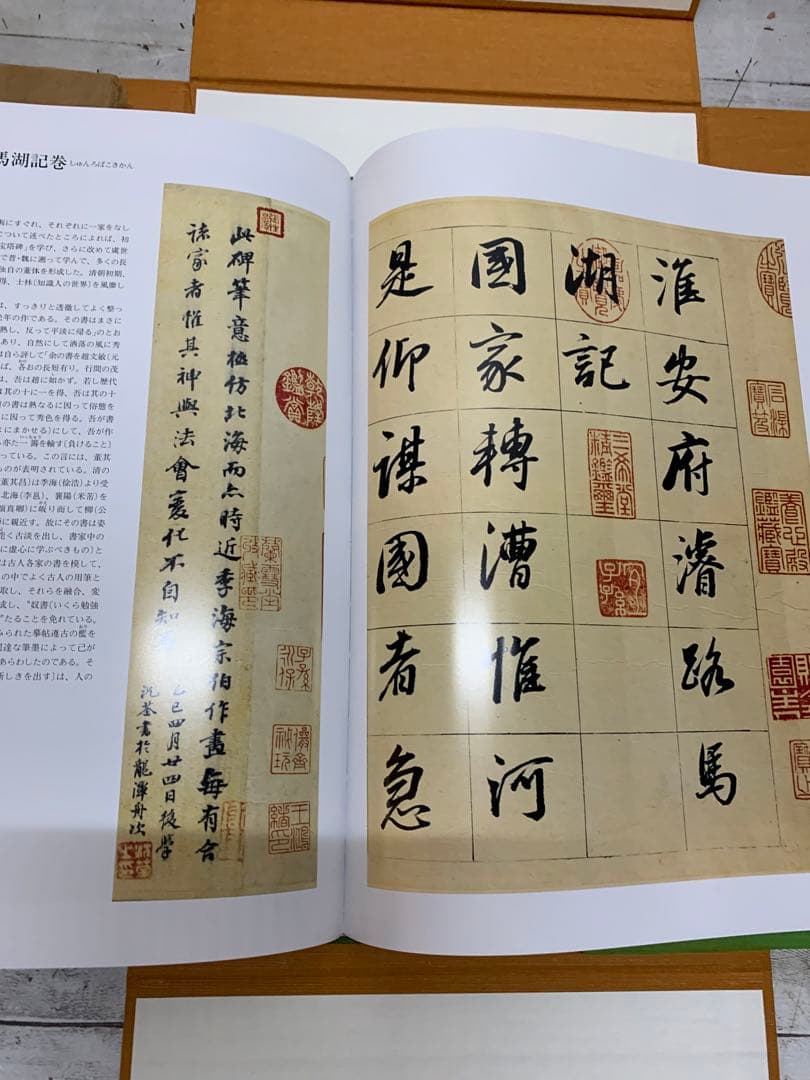 馬湖記巻 しゅんろばこきかん
画にすぐれ、それぞれに一家をなし
について述べたところによれば、初
宝塔碑」を学び、さらに改めて虞世
で晋・魏に溯って学んで、多くの長
独自の董体を形成した。清朝初期、
得、士林(知識人の世界)を風靡し
は、すっきりと透徹してよく整っ
晩年の作である。その書はまさに
熟し、反って平淡に帰る」のとお
あり、自然にして洒落の風に秀
は自ら評して「余の書を趙文敏(元
ば、各おの長短有り。行間の茂
は、吾は趙に如かず。若し歴代
は其の十に一を得、吾は其の十
の書は熟なるに因って俗態を
に因って秀色を得る。吾が書
まにまかせる)にして、吾が作
ら亦た一籌を輸す(負けること)
っている。この言には、董其
ものが表明されている。清の
董其昌)は季海(徐浩)より受
北海(李邕)、襄陽(米芾)を
顔真卿)に 而して柳(公
に親近す。故にその書は姿
く古淡を出し、書家中の
に虚心に学ぶべきもの)と
は古人各家の書を模して、
の中でよく古人の用筆と
取し、それらを融合、変
成し、"奴書(いくら勉強
"たることを免れている。
みられた摹帖遵古の檻を
達な筆墨によって己が
あらわしたのである。そ
新しきを出す)は、人の
此碑筆意極仿北海而点時近季海宗伯作書每有合
諸家者惟其神與法會變化不自知
乙巳四月廿四日後學
沈荃書於龍潭舟次
乾隆鑑賞
淮安府濬路馬
湖記
國家轉漕惟河
是仰謀國者急
石渠寶笈
養心殿鑑藏寶
三希堂精鑑璽
宜子孫